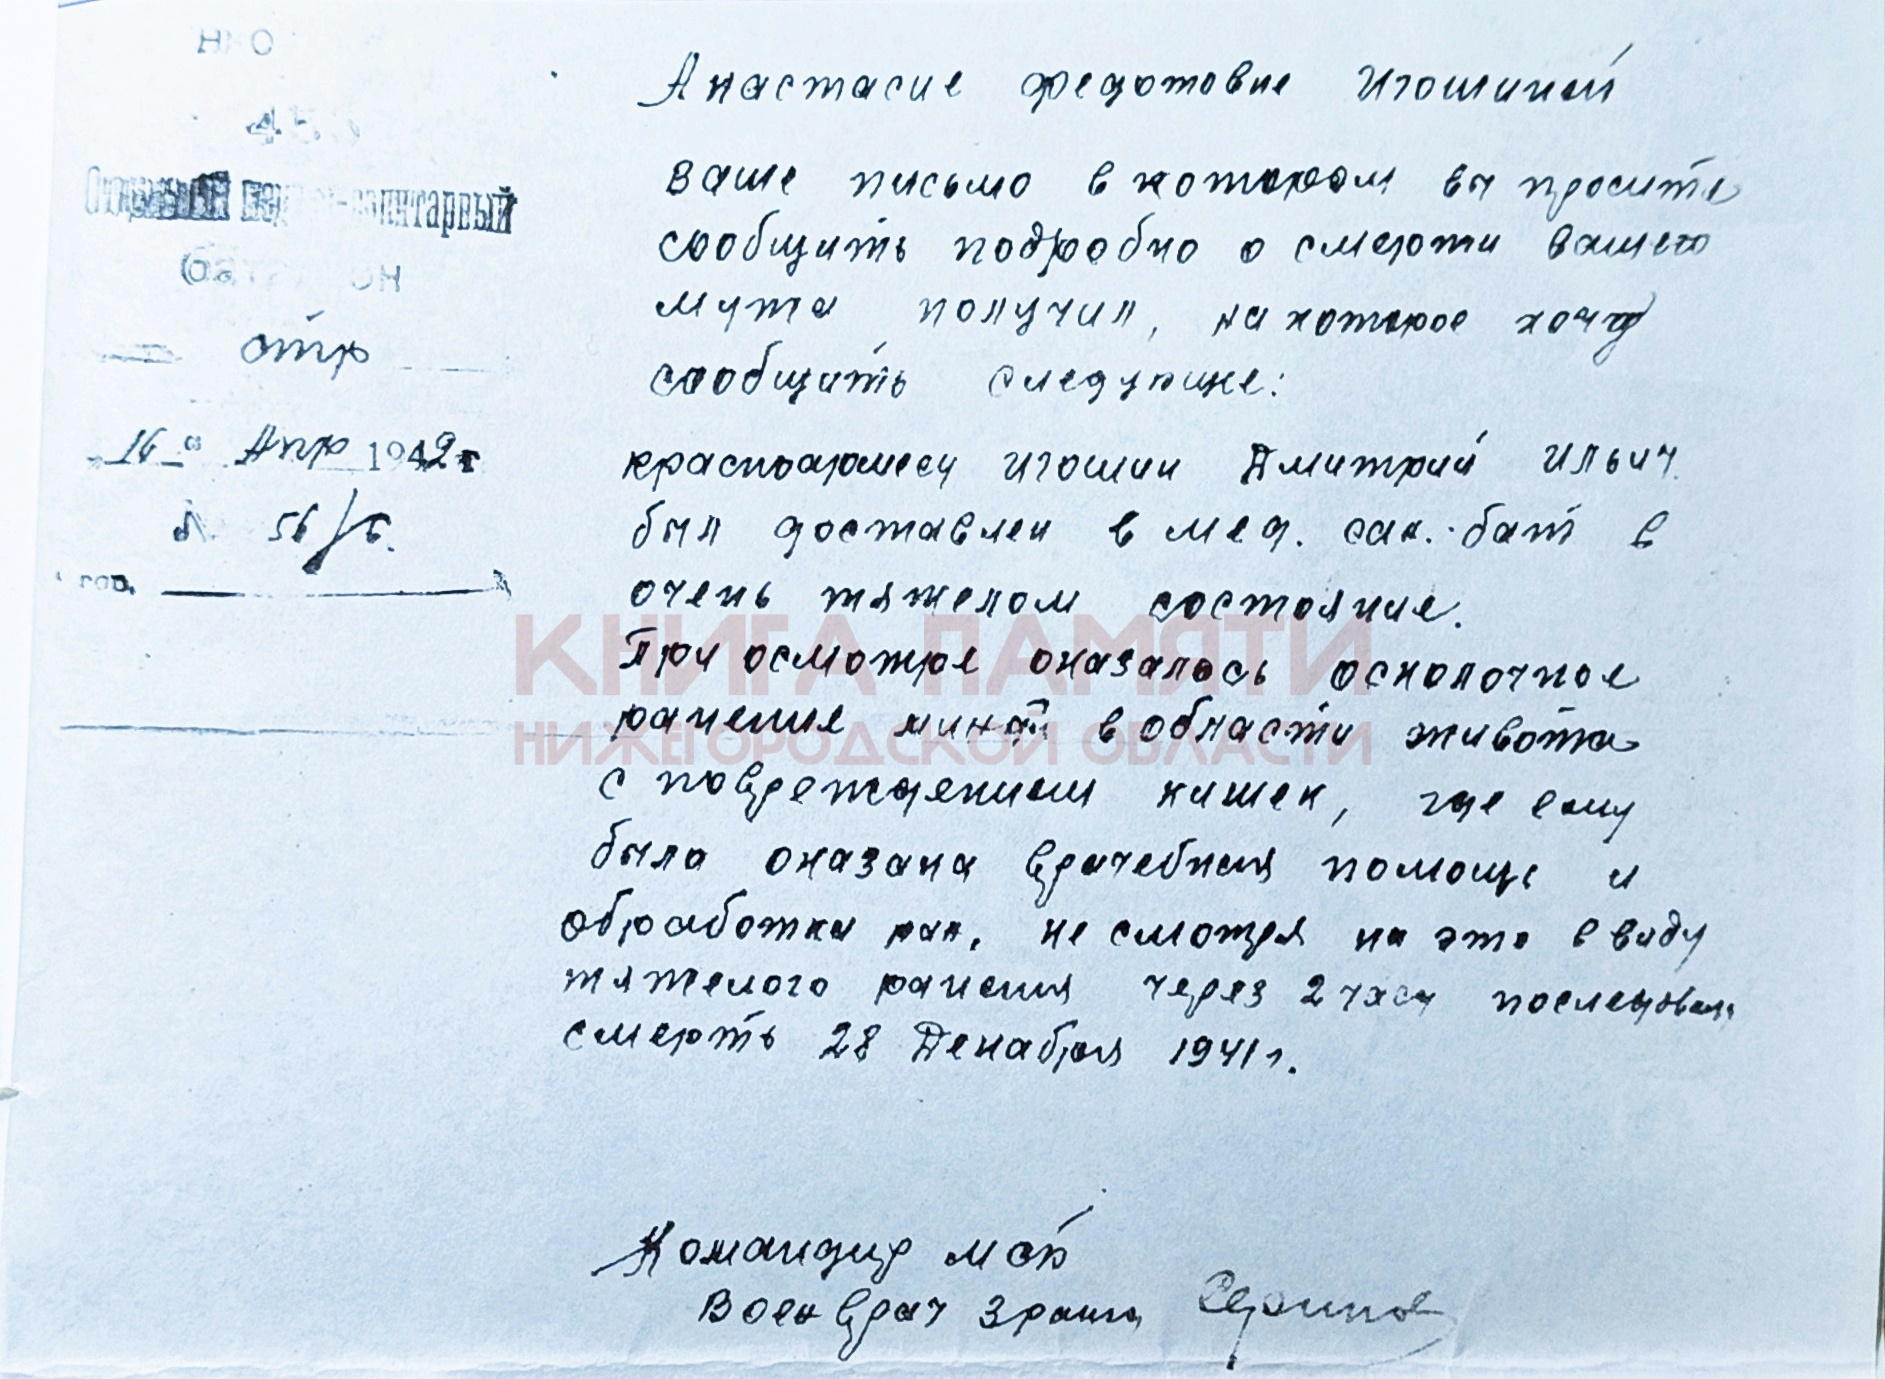 Отдельный медико-санитарный
отр
"16" Апр 1942 г
№ 56/Б.
гор.
Анастасие Федотовне Игошиной
Ваше письмо в котором вы просите
сообщить подробно о смерти вашего
мужа получил, на которое хочу
сообщить следующие:
красноармеец Игошин Дмитрий Ильич.
был доставлен в мед. сан. бат в
очень тяжелом состояние.
При осмотре оказалось осколочное
ранение миной в области живота
с повреждением кишек, где ему
была оказана врачебная помощь и
обработка ран, не смотря на это в виду
тяжелого ранения через 2 часа последовала
смерть 28 Декабря 1941 г.
Командир мсб
Военврач 3 ранга
КНИГА ПАМЯТИ
НИЖЕГОРОДСКОЙ ОБЛАСТИ